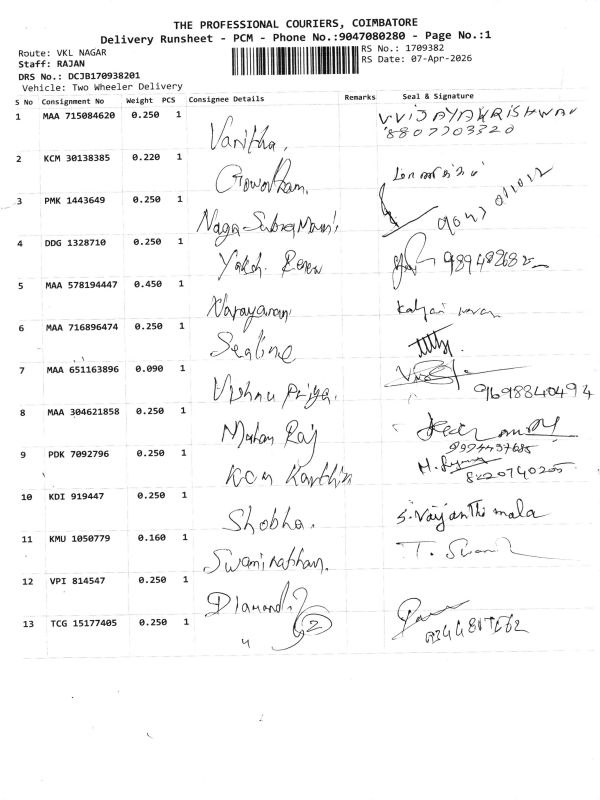 THE PROFESSIONAL COURIERS, COIMBATORE
Delivery Runsheet - PCM - Phone No.:9047080280 - Page No.:1
Route: VKL NAGAR
RS No.: 1709382
Staff: RAJAN
RS Date: 07-Apr-2026
DRS No.: DCJB170938201
Vehicle: Two Wheeler Delivery
S No Consignment No Weight PCS Consignee Details Remarks Seal & Signature
1 MAA 715084620 0.250 1 Vanitha. 8807703320
2 KCM 30138385 0.220 1 Gowtham.
3 PMK 1443649 0.250 1 Naga-Subramani
4 DDG 1328710 0.250 1 Yaksh
5 MAA 578194447 0.450 1 Narayanan
6 MAA 716896474 0.250 1 Sealine
7 MAA 651163896 0.090 1 Vishnu Priya. 9698840494
8 MAA 304621858 0.250 1 Mohan Raj
9 PDK 7092796 0.250 1 KCM Karthik
10 KDI 919447 0.250 1 Shobha. S. Vaijanthi mala
11 KMU 1050779 0.160 1 Swaminathan.
12 VPI 814547 0.250 1 Diamond
13 TCG 15177405 0.250 1 " 2